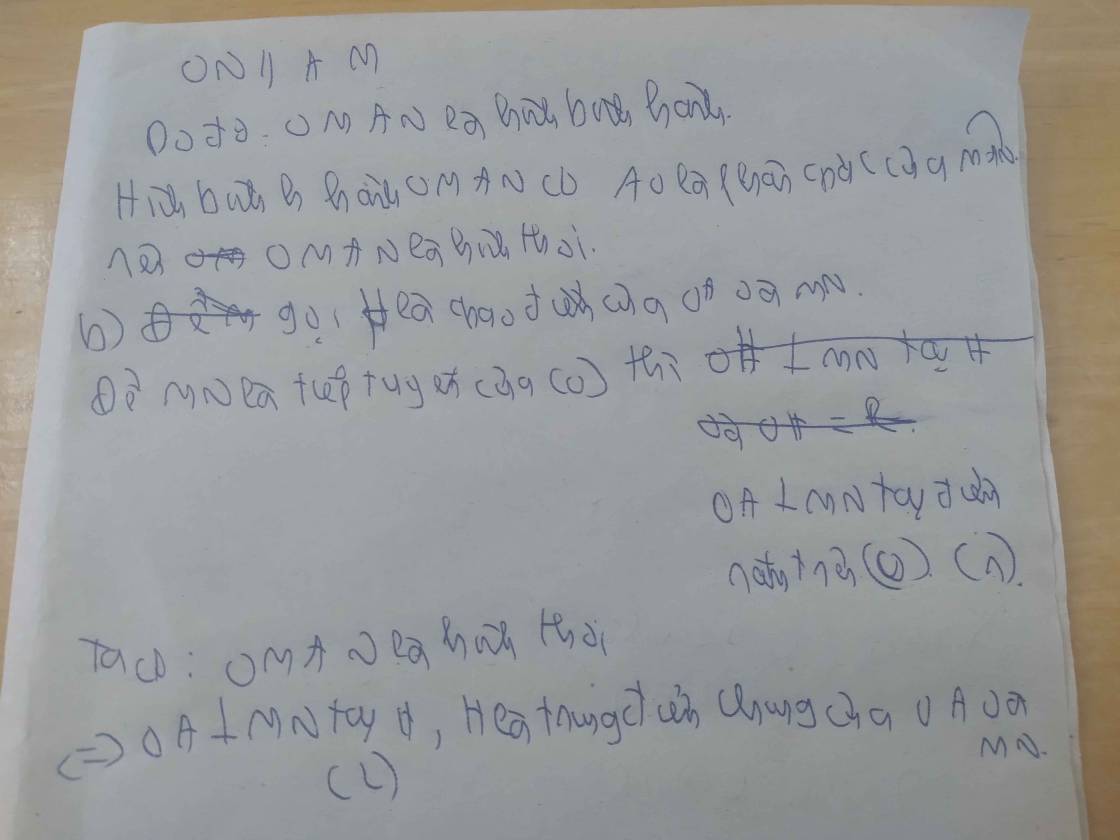 ON // AM
Do đó: OMAN là hình bình hành.
Hình bình hành OMAN có AO là phân giác của MAN.
nên OMAN là hình thoi.
b) gọi H là giao điểm của OA và MN.
Để MN là tiếp tuyến của (O) thì OH ⊥ MN tại H
và OH = R.
OA ⊥ MN tại điểm
nằm trên (O) (1).
Ta có: OMAN là hình thoi
(=> OA ⊥ MN tại H, H là trung điểm chung của OA và
MN.
(2)